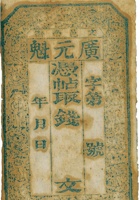 廣元魁
字第 號
憑帖取錢 文
年月日